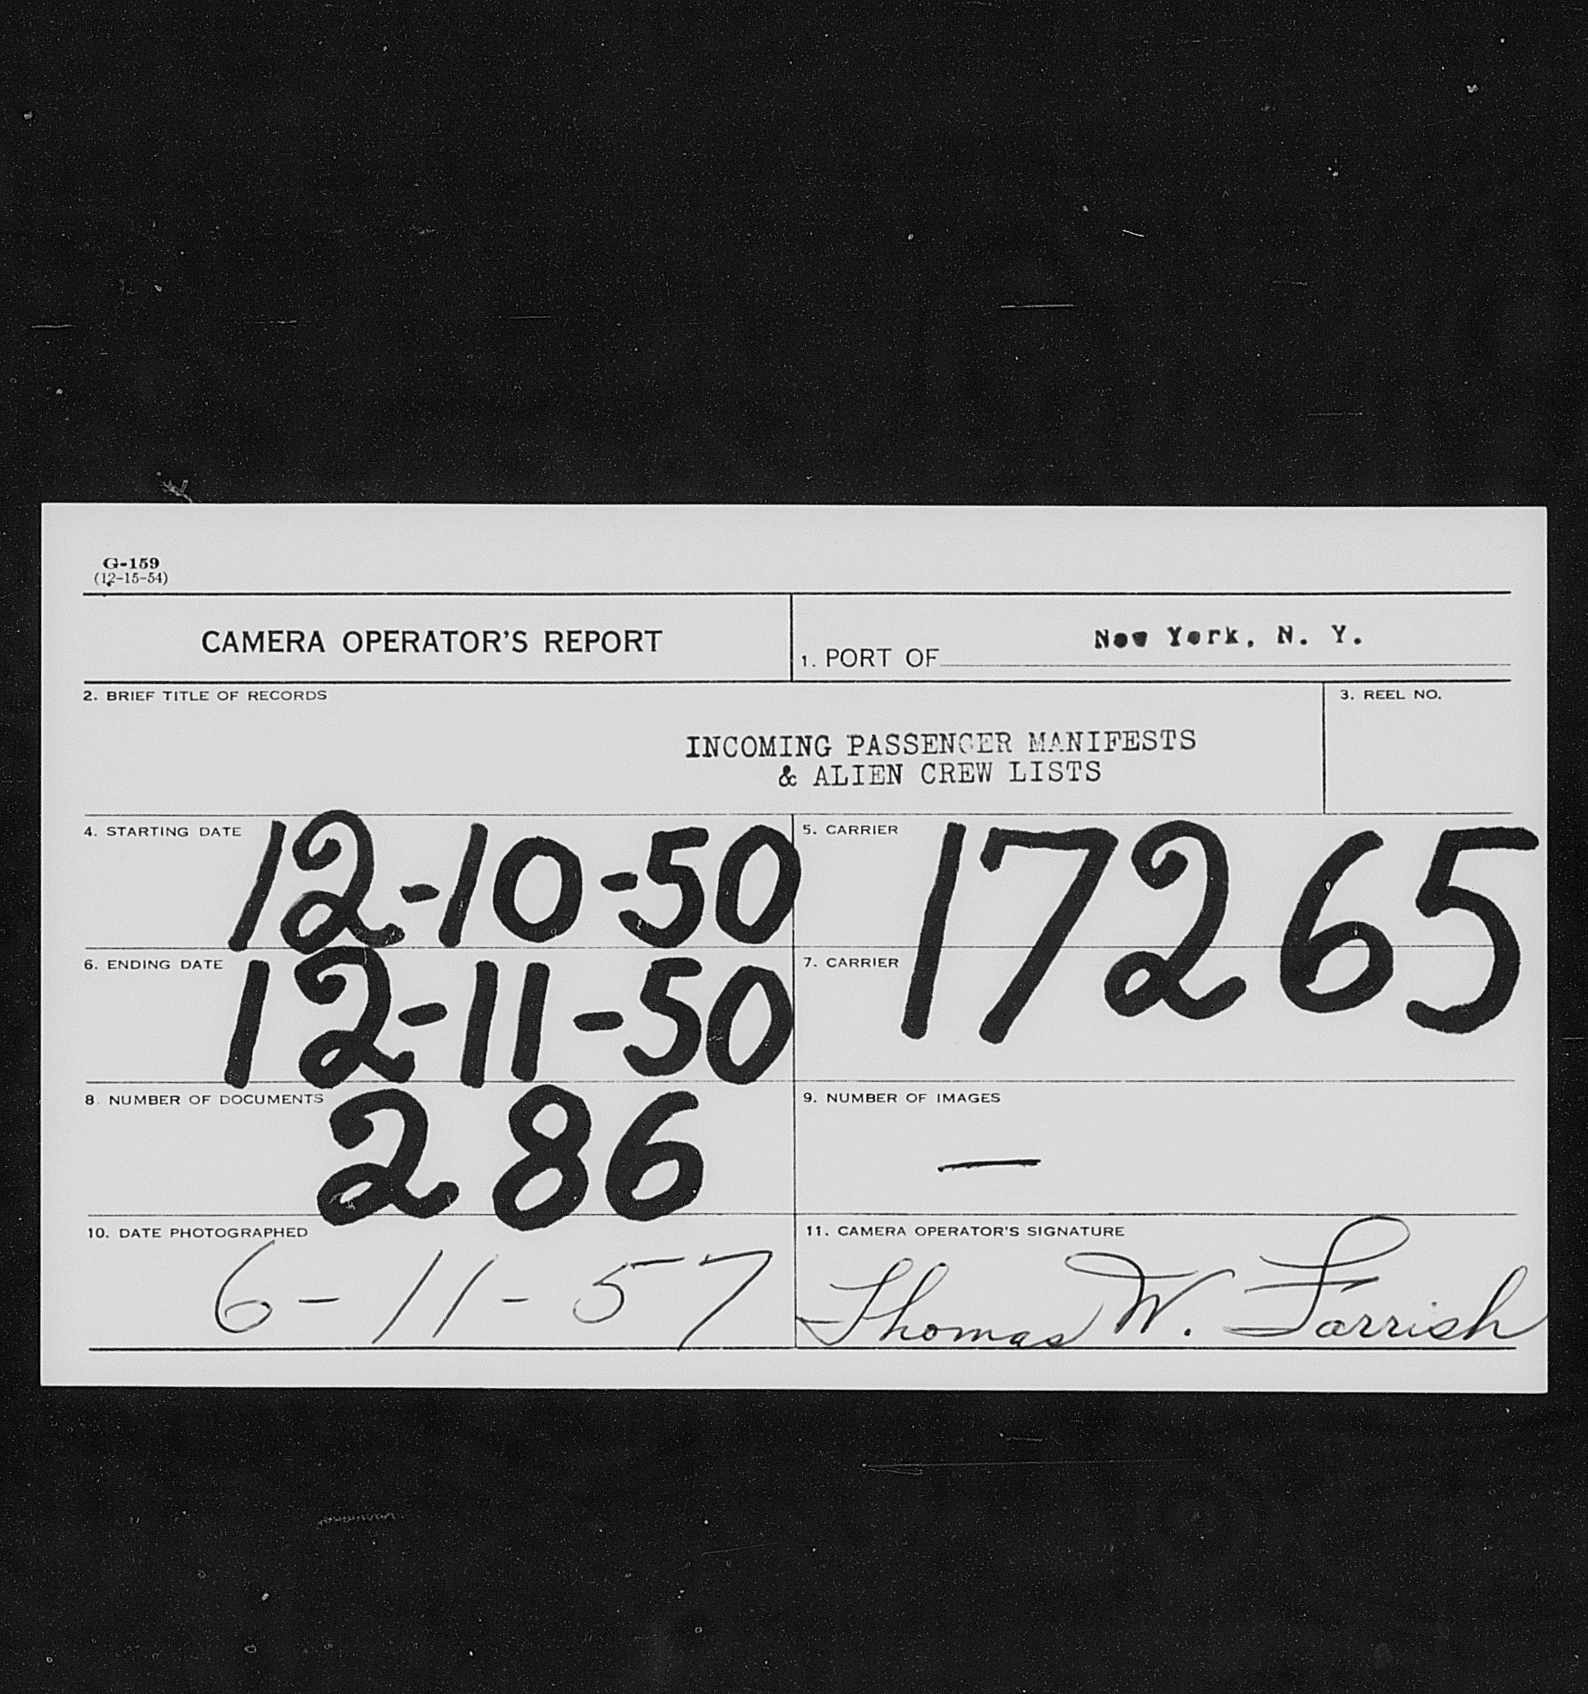 G-159
(12-15-54)
CAMERA OPERATOR'S REPORT
1. PORT OF New York, N. Y.
2. BRIEF TITLE OF RECORDS
INCOMING PASSENGER MANIFESTS
& ALIEN CREW LISTS
3. REEL NO.
4. STARTING DATE 12-10-50
5. CARRIER 17265
6. ENDING DATE 12-11-50
7. CARRIER
8. NUMBER OF DOCUMENTS 286
9. NUMBER OF IMAGES —
10. DATE PHOTOGRAPHED
6-11-57
11. CAMERA OPERATOR'S SIGNATURE
Thomas W. Farrish